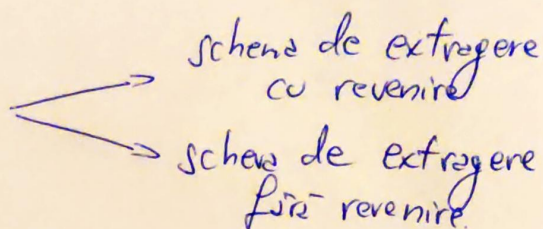 schema de extragere
cu revenire
schema de extragere
fără revenire